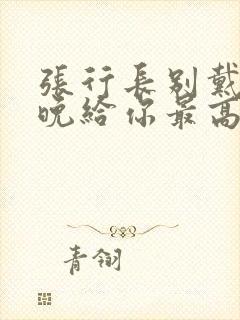 張行長別戴
晚給你最高
青翎